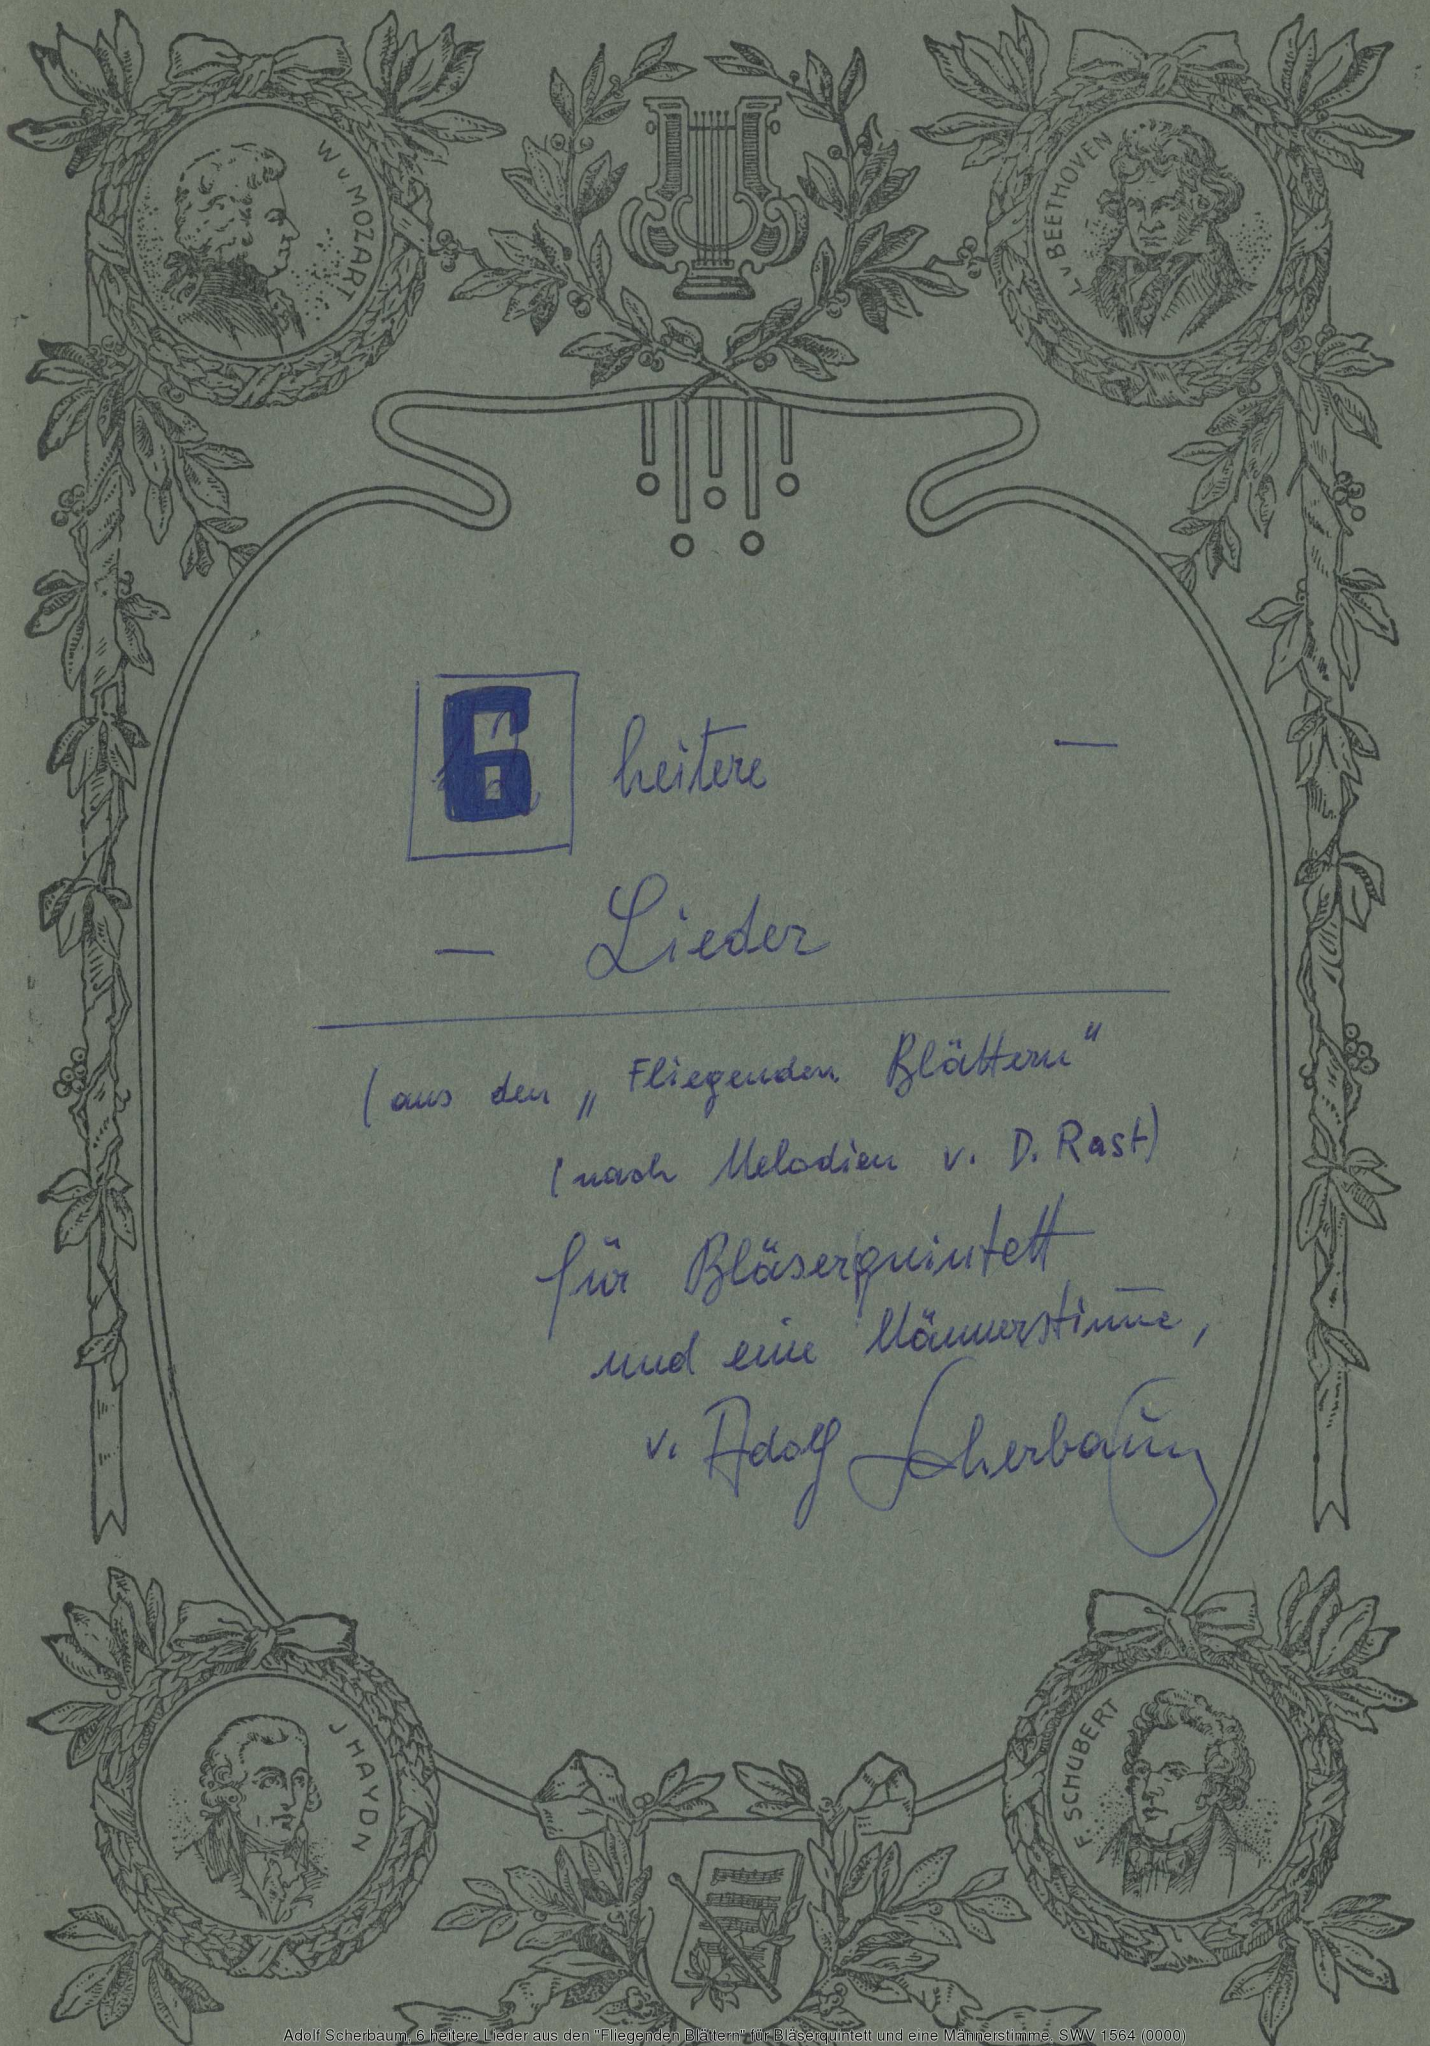 W v MOZART
L v BEETHOVEN
6 heitere —
— Lieder
(aus den „Fliegenden Blättern"
(nach Melodien v. D. Rast)
für Bläserquintett
und eine Männerstimme,
v. Adolf Scherbaum
J HAYDN
F SCHUBERT
Adolf Scherbaum, 6 heitere Lieder aus den "Fliegenden Blättern" für Bläserquintett und eine Männerstimme, SWV 1564 (0000)